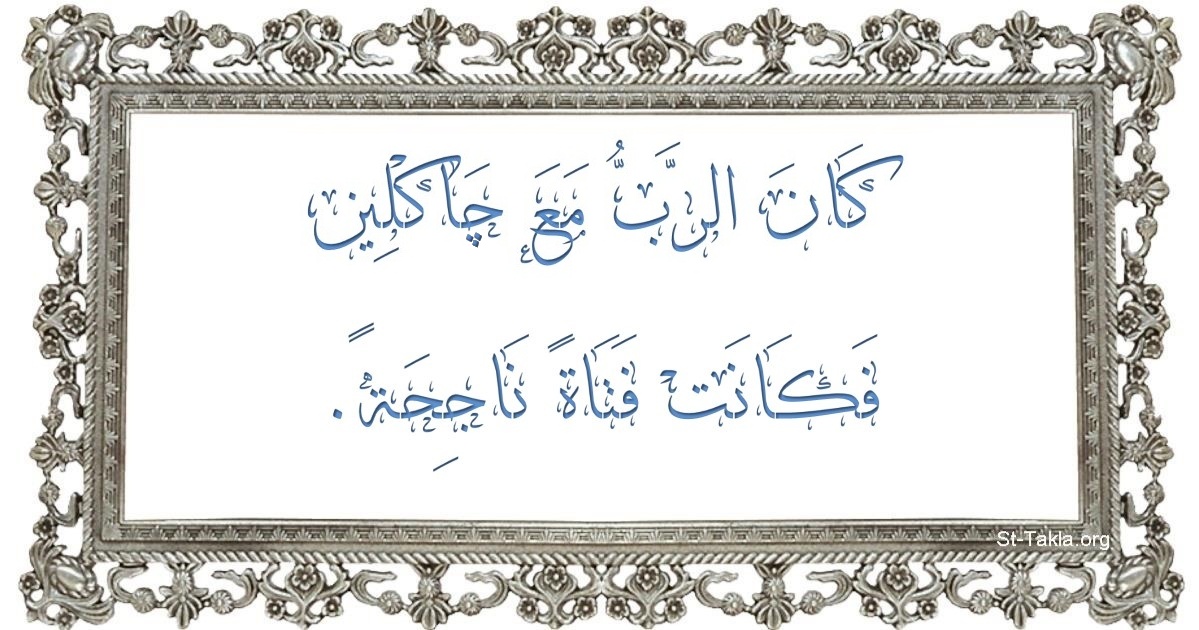 كَانَ الرَّبُّ مَعَ چَاكْلِين
فَكَانَتْ فَتَاةً نَاجِحَةً.
St-Takla.org